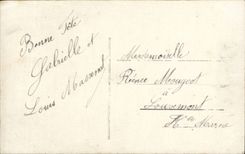 Bonne Fête
Gabrielle et
Louis Massenet
Mademoiselle
Mougeot
à
Louvemont
Hte Marne